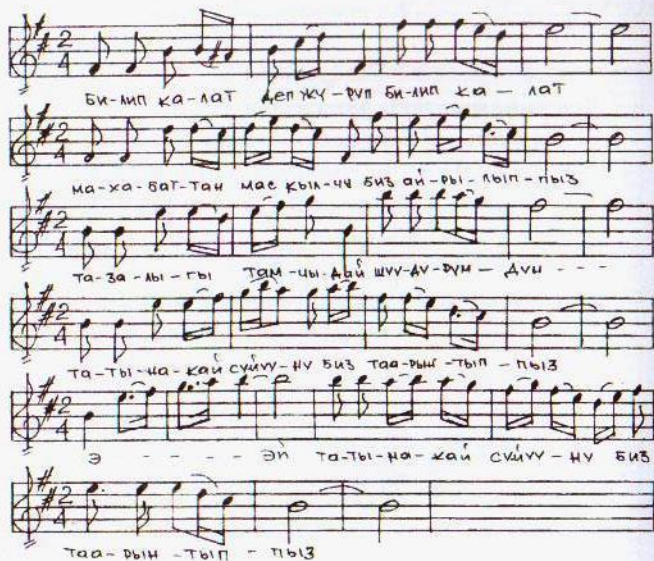 2
4
БИ-ЛИП КА-ЛАТ ДЕП ЖҮ-РҮП БИ-ЛИП КА — ЛАТ
2
4
МА-ХА-БАТ-ТАН МАС КЫЛ-ЧУ БИЗ АЙ-РЫ-ЛЫП-ПЫЗ
2
4
ТА-ЗА-ЛЫ-ГЫ ТАМ-ЧЫ-ДАЙ ШУУ-ДУ-РУМ — ДУН - - -
2
4
ТА-ТЫ-НА-КАЙ СҮЙҮҮ-НҮ БИЗ ТАА-РЫН-ТЫП - ПЫЗ
2
4
Э - - - - ЭЙ ТА-ТЫ-НА-КАЙ СҮЙҮҮ-НҮ БИЗ
2
4
ТАА-РЫН-ТЫП - ПЫЗ